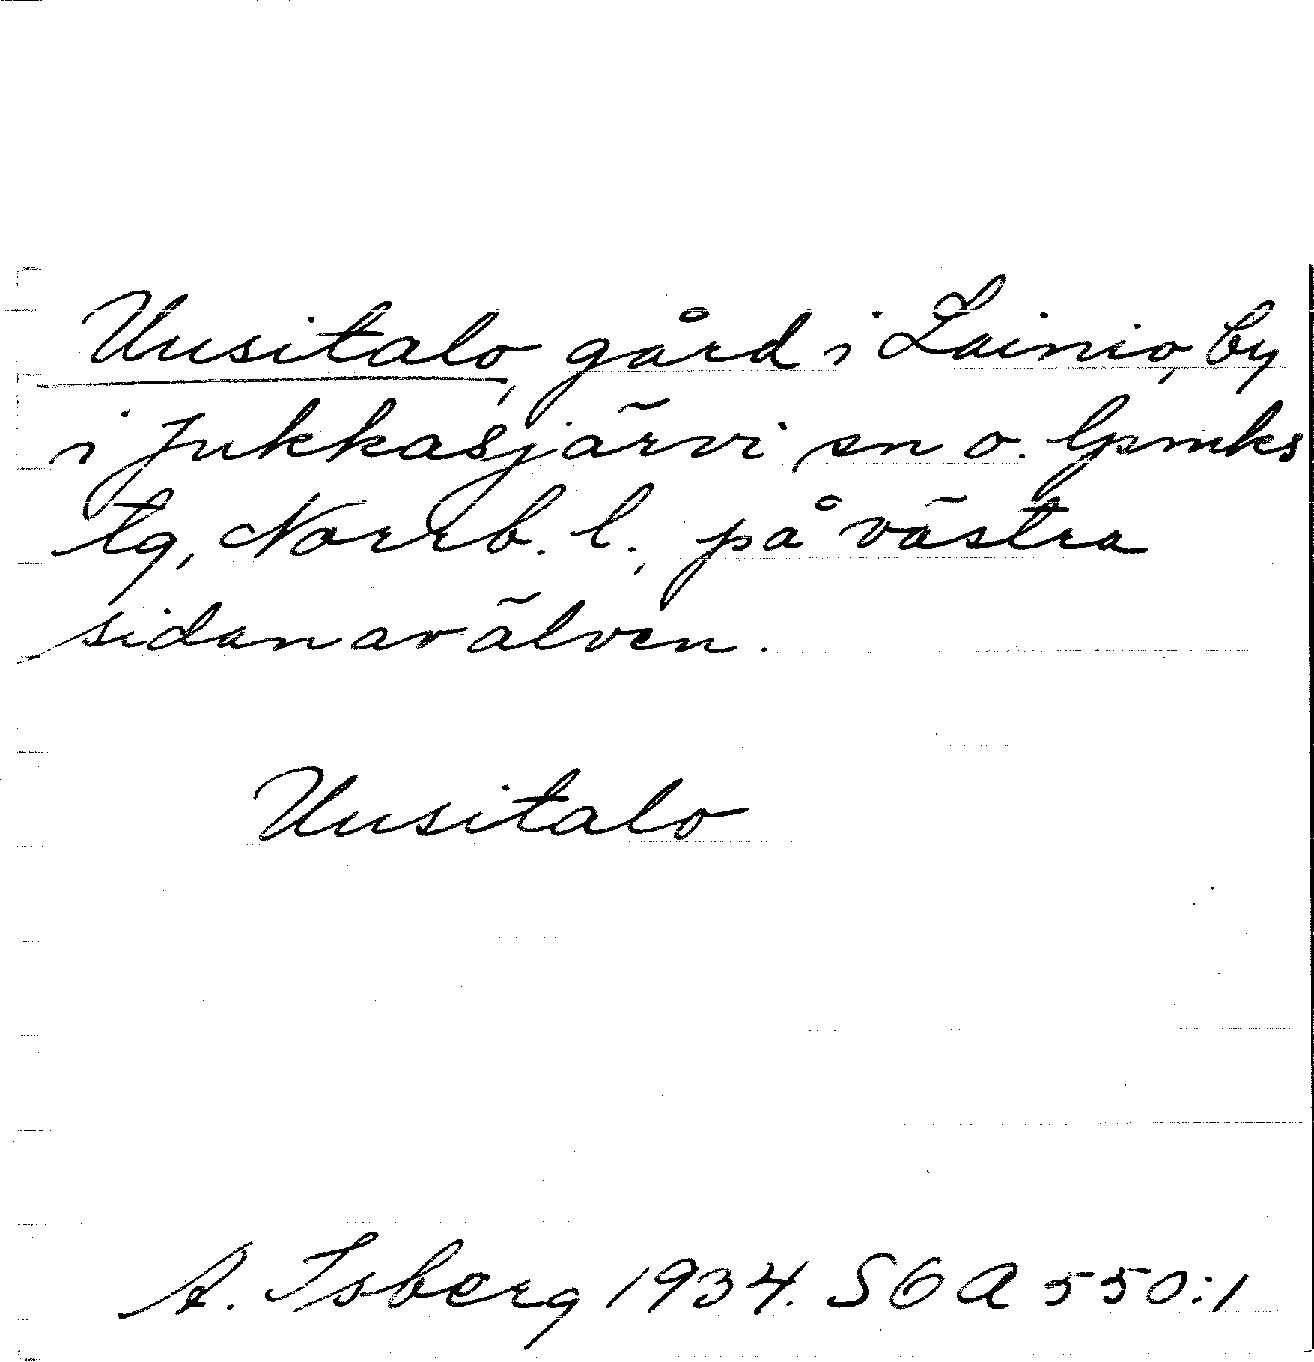 Uusitalo, gård i Lainio, by
i Jukkasjärvi sn o. lpmks
tg, Norrb. l., på västra
sidan av älven.
Uusitalo
A. Isberg 1934. SOA 550:1